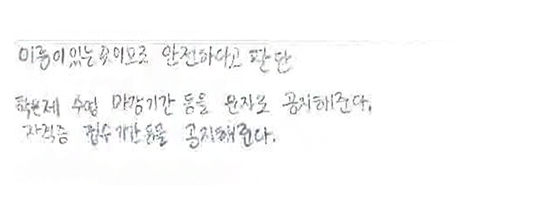 이름이 있는 곳이므로 안전하다고 판단
학원제 수업 마감기간 등을 문자로 공지해준다.
자격증 접수기간 등을 공지해준다.